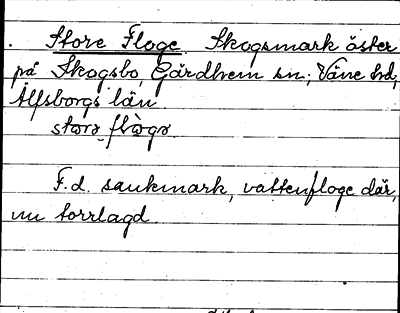 Store Floge. Skogsmark öster
på Skogsbo, Gärdhem sn, Väne hd,
Älfsborgs län
F.d. sankmark, vattenfloge där,
nu torrlagd.